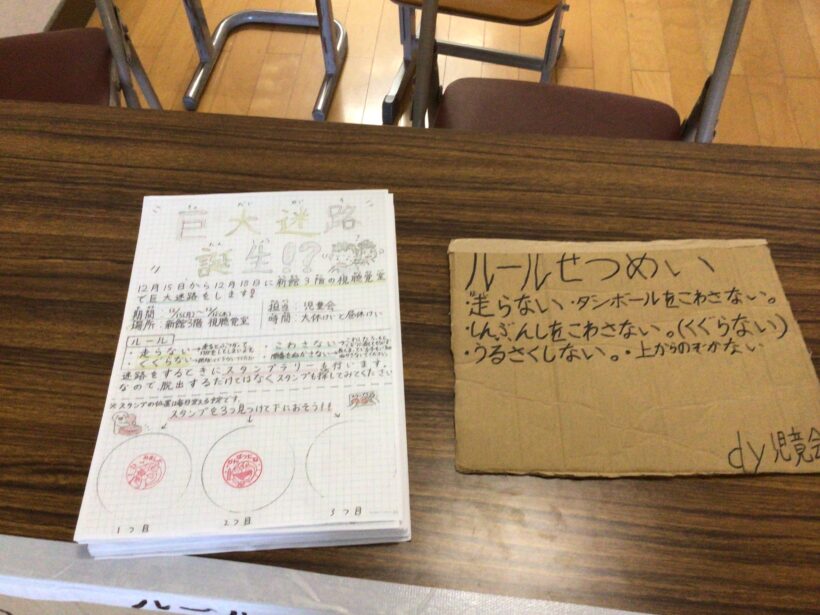 巨大迷路
誕生!?
12月15日から12月18日に新館3階の視聴覚室
で巨大迷路をします!
期間
担当:児童会
場所:新館3階 視聴覚室
時間:大休けいと昼休けい
ルール
・走らない
・こわさない
・くぐらない
迷路をするときにスタンプラリーを行います。
なので、脱出するだけではなくスタンプも探してみてください
※スタンプの位置は毎日変える予定です。
スタンプを3つ見つけて下におそう!!
1つ目
2つ目
3つ目
ルールせつめい
・走らない・ダンボールをこわさない。
・しんぶんしをこわさない。(くぐらない)
・うるさくしない。・上からのぞかない
dy児童会